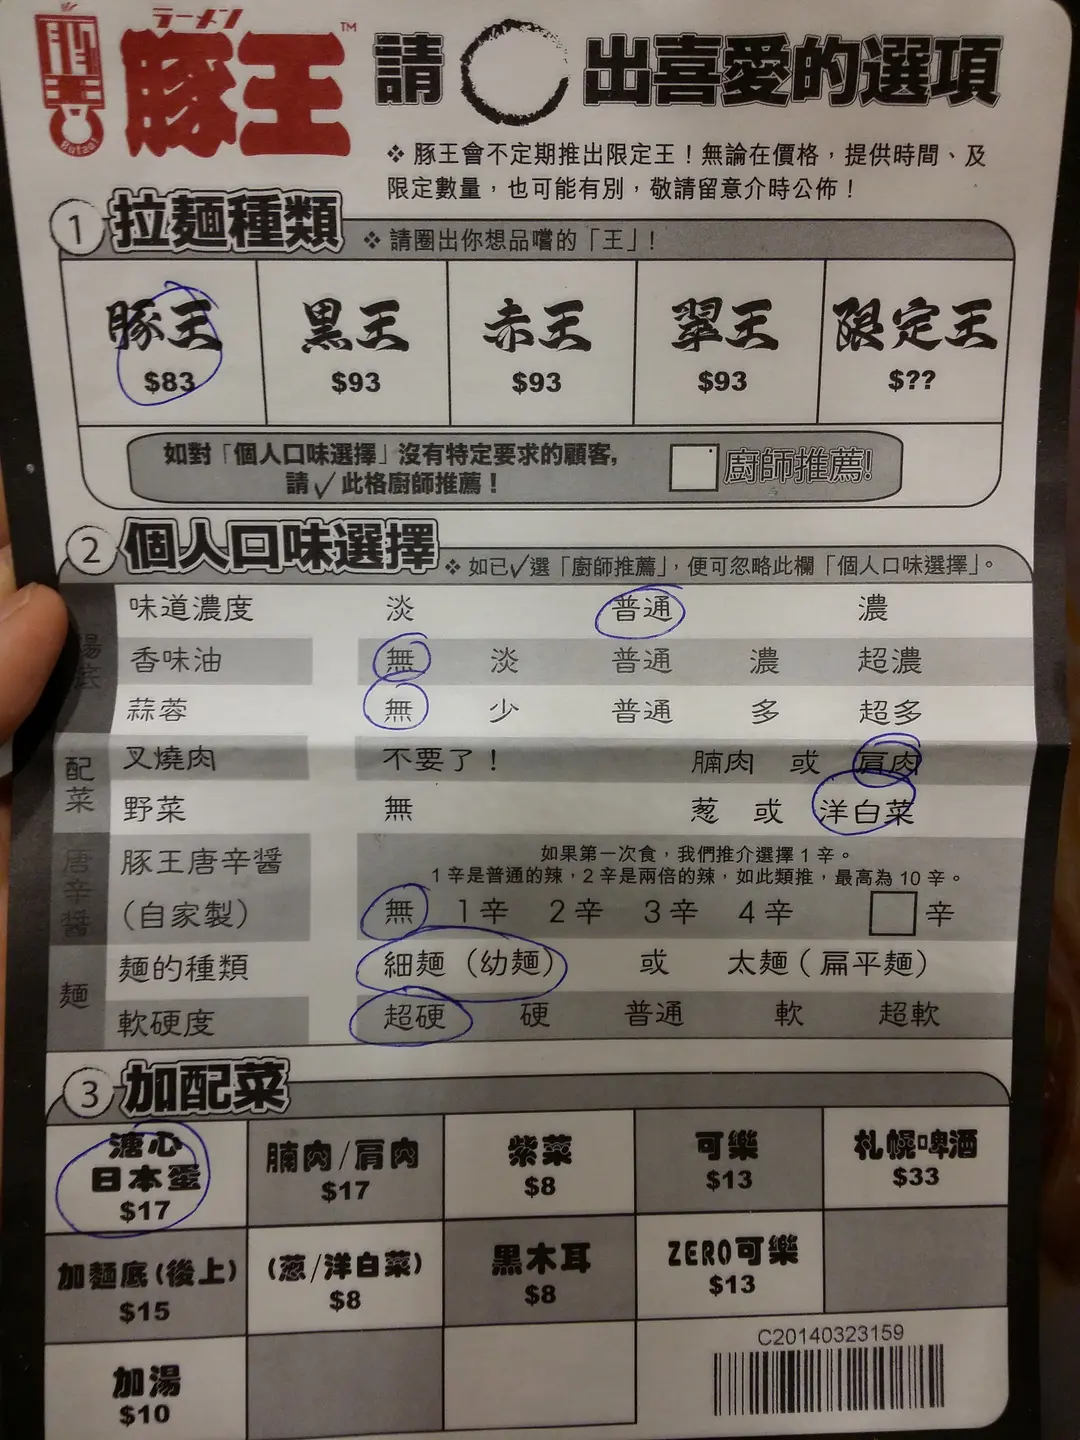 ラーメン
豚王™
Butao!
請 出喜愛的選項
❖ 豚王會不定期推出限定王！無論在價格，提供時間、及
限定數量，也可能有別，敬請留意介時公佈！
1 拉麵種類 ❖ 請圈出你想品嚐的「王」！
豚王 黑王 赤王 翠王 限定王
$83 $93 $93 $93 $??
如對「個人口味選擇」沒有特定要求的顧客，
請✓此格廚師推薦！
廚師推薦！
2 個人口味選擇 ❖ 如已✓選「廚師推薦」，便可忽略此欄「個人口味選擇」。
湯底
味道濃度 淡 普通 濃
香味油 無 淡 普通 濃 超濃
蒜蓉 無 少 普通 多 超多
配菜
叉燒肉 不要了！ 腩肉 或 肩肉
野菜 無 葱 或 洋白菜
唐辛醬
豚王唐辛醬
（自家製）
如果第一次食，我們推介選擇1辛。
1辛是普通的辣，2辛是兩倍的辣，如此類推，最高為10辛。
無 1辛 2辛 3辛 4辛 辛
麵
麵的種類 細麵（幼麵） 或 太麵（扁平麵）
軟硬度 超硬 硬 普通 軟 超軟
3 加配菜
溏心
日本蛋
$17
腩肉/肩肉
$17
紫菜
$8
可樂
$13
札幌啤酒
$33
加麵底(後上)
$15
(葱/洋白菜)
$8
黑木耳
$8
ZERO可樂
$13
加湯
$10
C20140323159